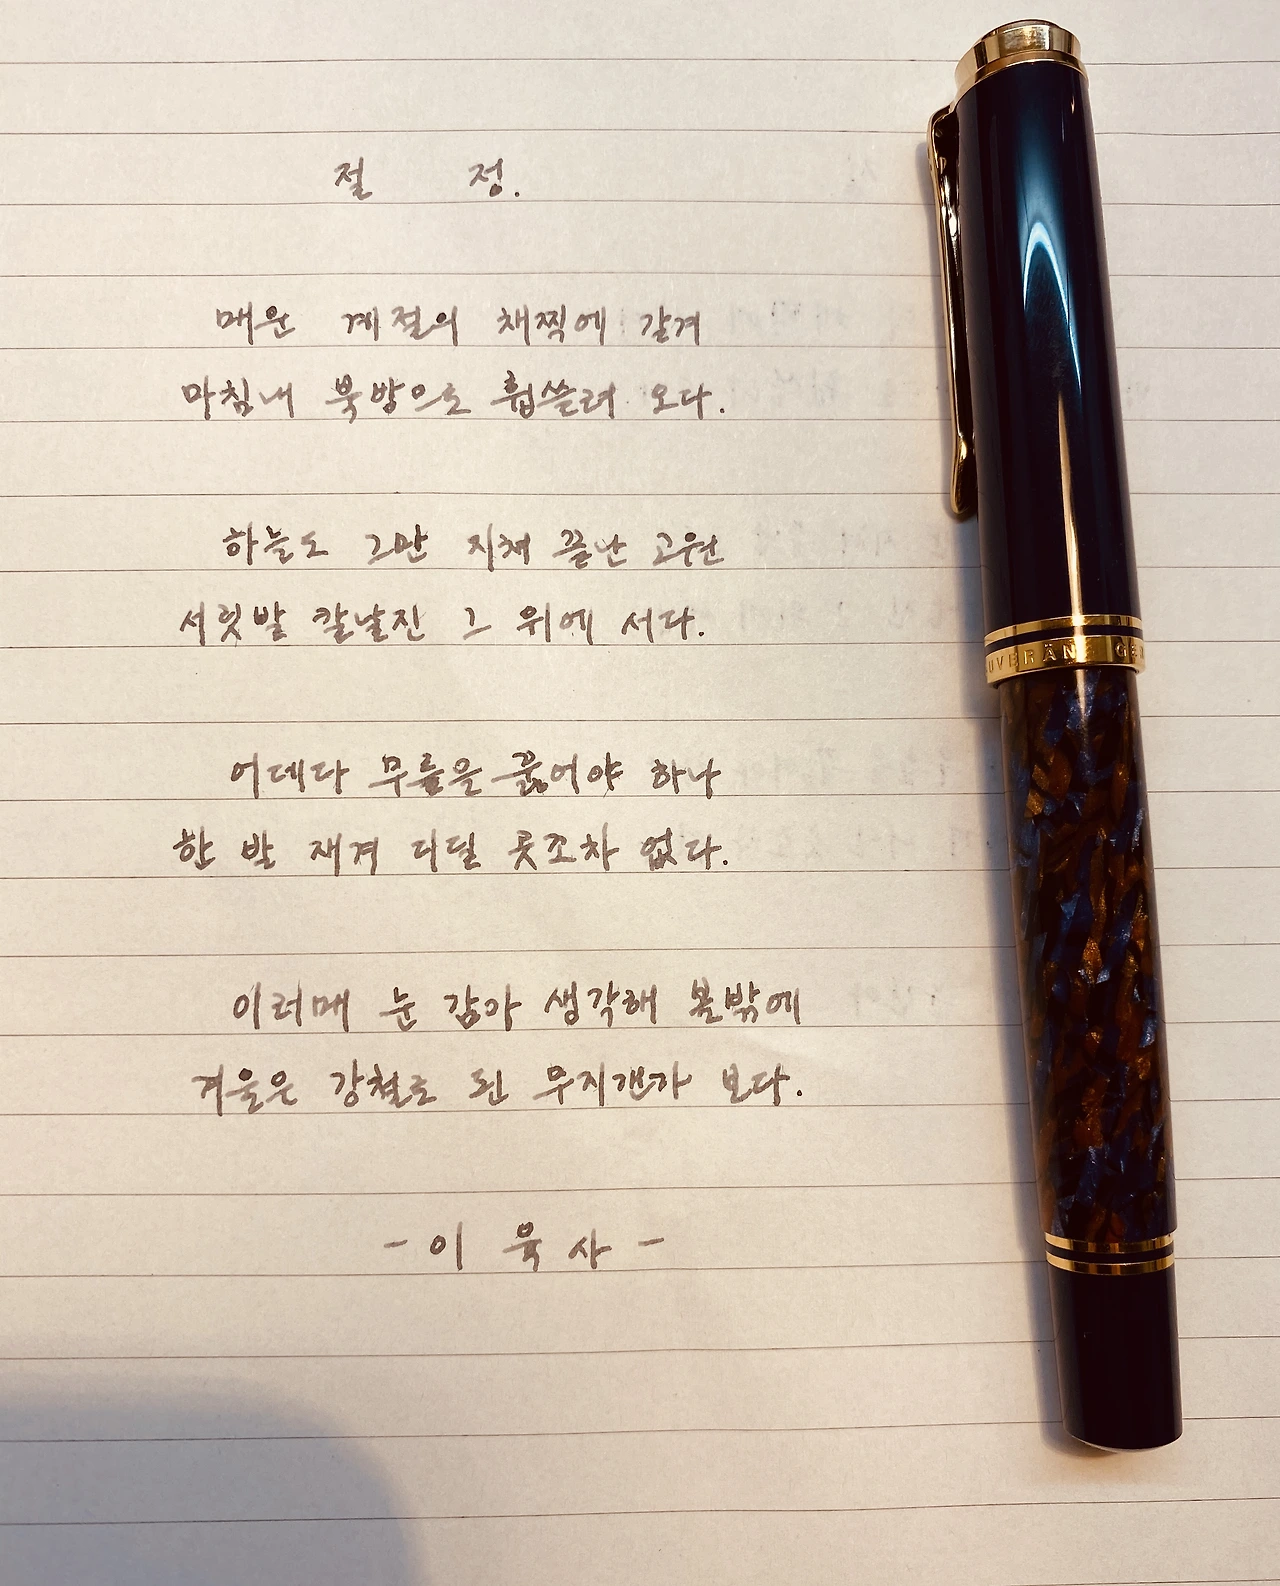 절 정.
매운 계절의 채찍에 갈겨
마침내 북방으로 휩쓸려 오다.
하늘도 그만 지쳐 끝난 고원
서릿발 칼날진 그 위에 서다.
어데다 무릎을 꿇어야 하나
한 발 재겨 디딜 곳조차 없다.
이러매 눈 감아 생각해 볼밖에
겨울은 강철로 된 무지갠가 보다.
- 이 육 사 -